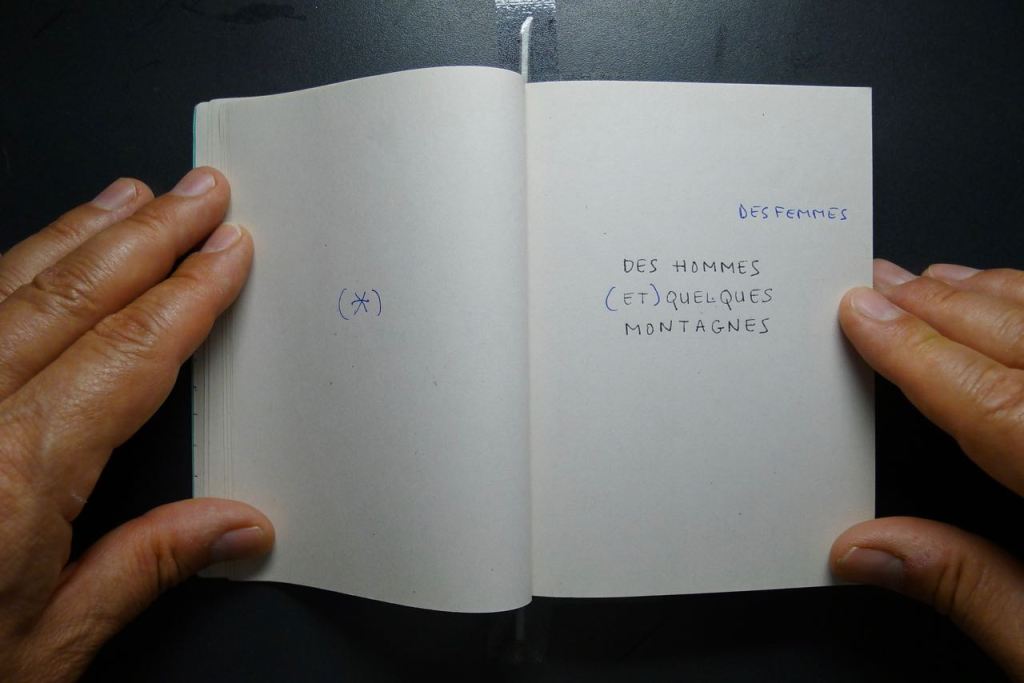 (*)
DES FEMMES
DES HOMMES
(ET) QUELQUES
MONTAGNES